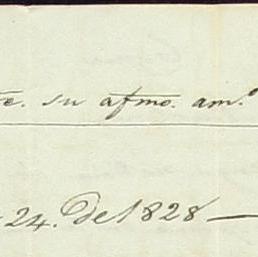 te. su afmo. am.º
24. De 1828 —